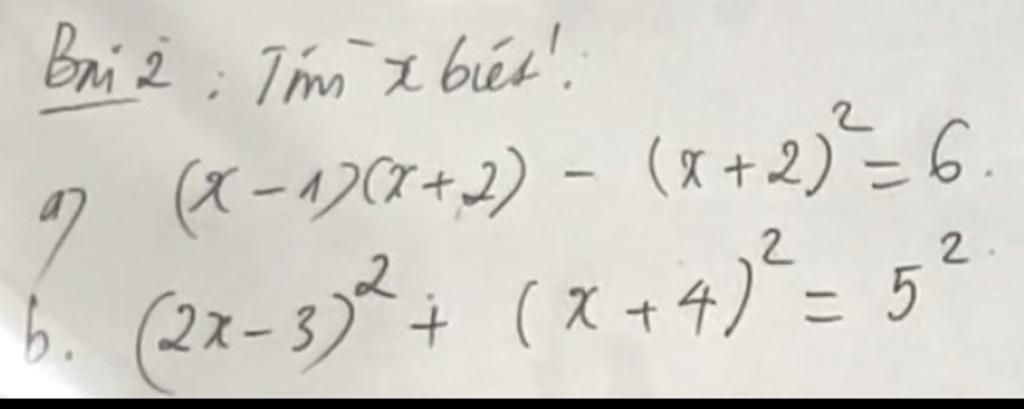 Bài 2 : Tìm x biết :
a) (x - 1)(x + 2) - (x + 2)² = 6.
b. (2x - 3)² + (x + 4)² = 5².